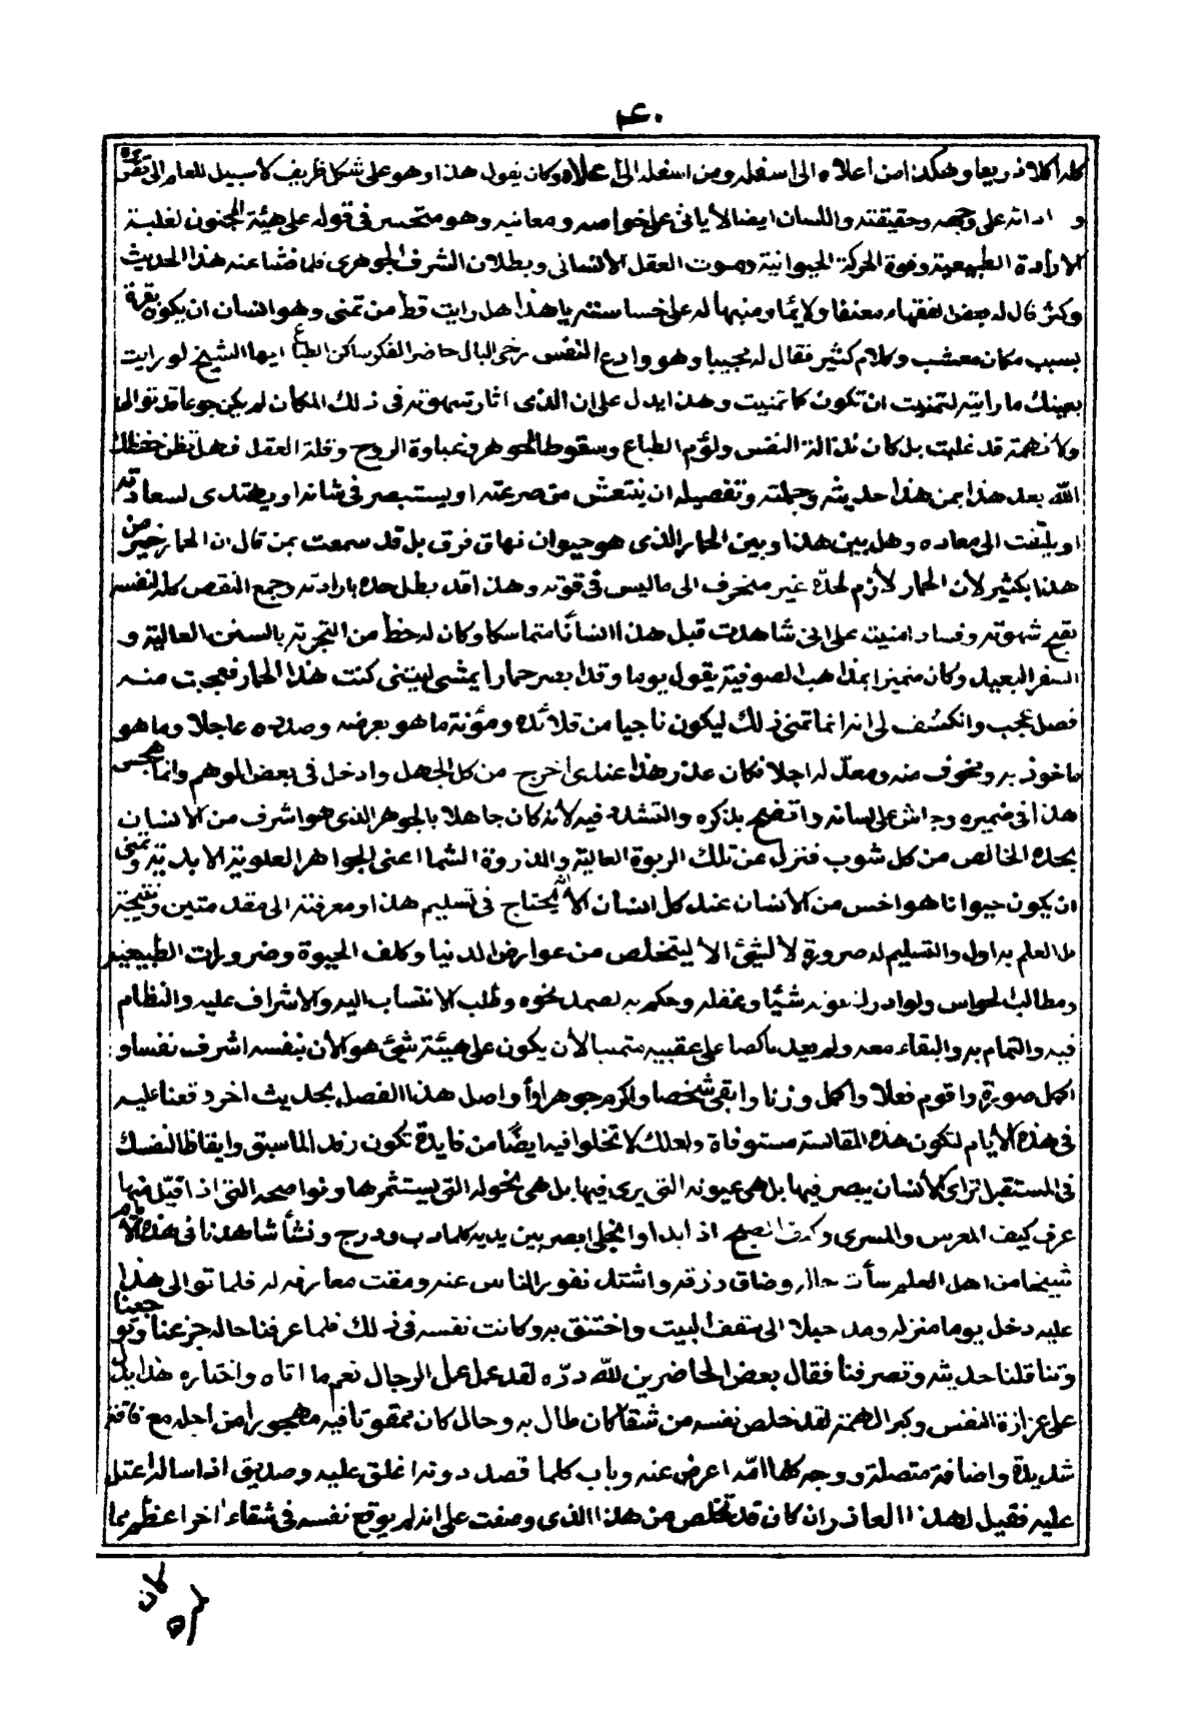 ٤٠
كله اكلا ذريعا وهكذا من أعلاه الى اسفله ومن اسفله الى أعلاه وكان يقول هذا وهو على شكل ظريف لا سبيل للعلم الى تقصيره
و ادائه على وجهه وحقيقته واللسان ايضا لا يأتي على خواصه ومعانيه وهو متحسر في قوله على هيئة المجنون لغلبة
الارادة الطبيعية وقوة الحركة الحيوانية وموت العقل الانساني وبطلان الشرف الجوهرى فلما فشا عنه هذا الحديث
وكثر قال له بعض الفقهاء معنفا ولائما ومنبها له على خساسته يا هذا هل رايت قط من تمنى وهو انسان ان يكون بقرة
بسبب مكان معشب وكلام كثير فقال له مجيبا وهو وادع النفس رخى البال حاضر الفكر ساكن الطباع ايها الشيخ لو رايت
بعينك ما رايته لتمنيت ان تكون كما تمنيت وهذا يدل على ان الذى اثار شهوته في ذلك المكان لم يكن جوعا قد توالى
ولا نهمة قد غلبت بل كان نذالة النفس ولؤم الطباع وسقوط الجوهر وغباوة الروح وقلة العقل فهل تظن حفظك
الله بعد هذا بمن هذا حديثه وجملته وتفصيله ان ينتعش من صرعته او يستبصر في شانه او يهتدى لسعادته
او يلتفت الى معاده وهل بين هذا وبين الحمار الذى هو حيوان نهاق فرق بل قد سمعت بمن قال ان الحمار خير من
هذا بكثير لان الحمار لازم لحده غير منحرف الى ما ليس في قوته وهذا قد بطل حده بارادته وجمع النقص كله لنفسه
بقبح شهوته وفساد امنيته على انى شاهدت قبل هذا انسانا متماسكا وكان له حظ من التجربة بالسنن العالية و
السفر البعيد وكان متميزا بمذاهب الصوفية يقول يوما وقد ابصر حمارا يمشى ليتنى كنت هذا الحمار فعجبت منه
فصل عجب وانكشف لى انه انما تمنى ذلك ليكون ناجيا من قلائده ومؤنة ما هو بعرضه وصدده عاجلا وما هو
ماخوذ به ومخوف منه ومعد له اجلا فكان عذر هذا عندى اخرج من كل الجهل وادخل في بعض الوهم وانما هجس
هذا في ضميره وجاش على لسانه واتضح بذكره والتشدد فيه لانه كان جاهلا بالجوهر الذى هو اشرف من الانسان
بحده الخالص من كل شوب فنزل عن تلك الربوة العالية والذروة الشما اعنى الجواهر العلوية الابدية وتمنى
ان يكون حيوانا هو اخس من الانسان عند كل انسان لانه لا يحتاج في تسليم هذا ومعرفته الى مقدمتين ونتيجة
بل العلم به اول والتسليم له ضرورة لا لشئ الا ليتخلص من عوارض الدنيا وكلف الحيوة وضرورات الطبيعة
ومطالب الحواس ولو ادرك بعونه شيئا وبفعله وحكم به لصمد نحوه وطلب الانتساب اليه والاشراف عليه والنظام
فيه والتمام به والبقاء معه ولم يعد ناكصا على عقبيه متمنيا لان يكون على هيئة شئ هو الآن بنفسه اشرف نفسا و
اكمل صورة واقوم فعلا واكمل وزنا وابقى شخصا واكرم جوهرا وأواصل هذا الفصل بحديث اخر دفعنا عليه
في هذه الأيام لتكون هذه المقابسة مستوفاة ولعلك لا تخلوا فيه ايضًا من فايدة تكون رفدا لما سبق وايقاظا لنفسك
في المستقبل تراى الانسان يبصر فيها بل هى عيونه التى يرى فيها بل هى نخوله التى يستثمرها ونواصحه التى اذا اقبل منها
عرف كيف المعرس والمسرى وكيف الصبح اذا بدا وانجلى ابصر بين يديه كلما دب ودرج ونشأ شاهدنا في هذه الأيام
شيخا من اهل العلم سأت حاله وضاق رزقه واشتد نفور الناس عنه ومقت معارفه له فلما توالى هذا
عليه دخل يوما منزله ومد حبلا الى سقف البيت واختنق به وكانت نفسه في ذلك فلما عرفنا حاله جزعنا وتوجعنا
وتناقلنا حديثه وتصرفنا فقال بعض الحاضرين لله درّه لقد عمل عمل الرجال نعم ما اتاه واختاره هذا يدل
على عزازة النفس وكبر الهمة لقد خلص نفسه من شقا كان طال به وحال كان ممقوتا فيه مهجورا من اجله مع فاقة
شديدة واضاقة متصلة ووجه كلما امّه اعرض عنه وباب كلما قصد دونه اغلق عليه وصديق اذا ساله اعتل
عليه فقيل لهذا العاذر ان كان قد تخلص من هذا الذى وصفت على انه لم يوقع نفسه في شقاء اخر اعظم مما
كان